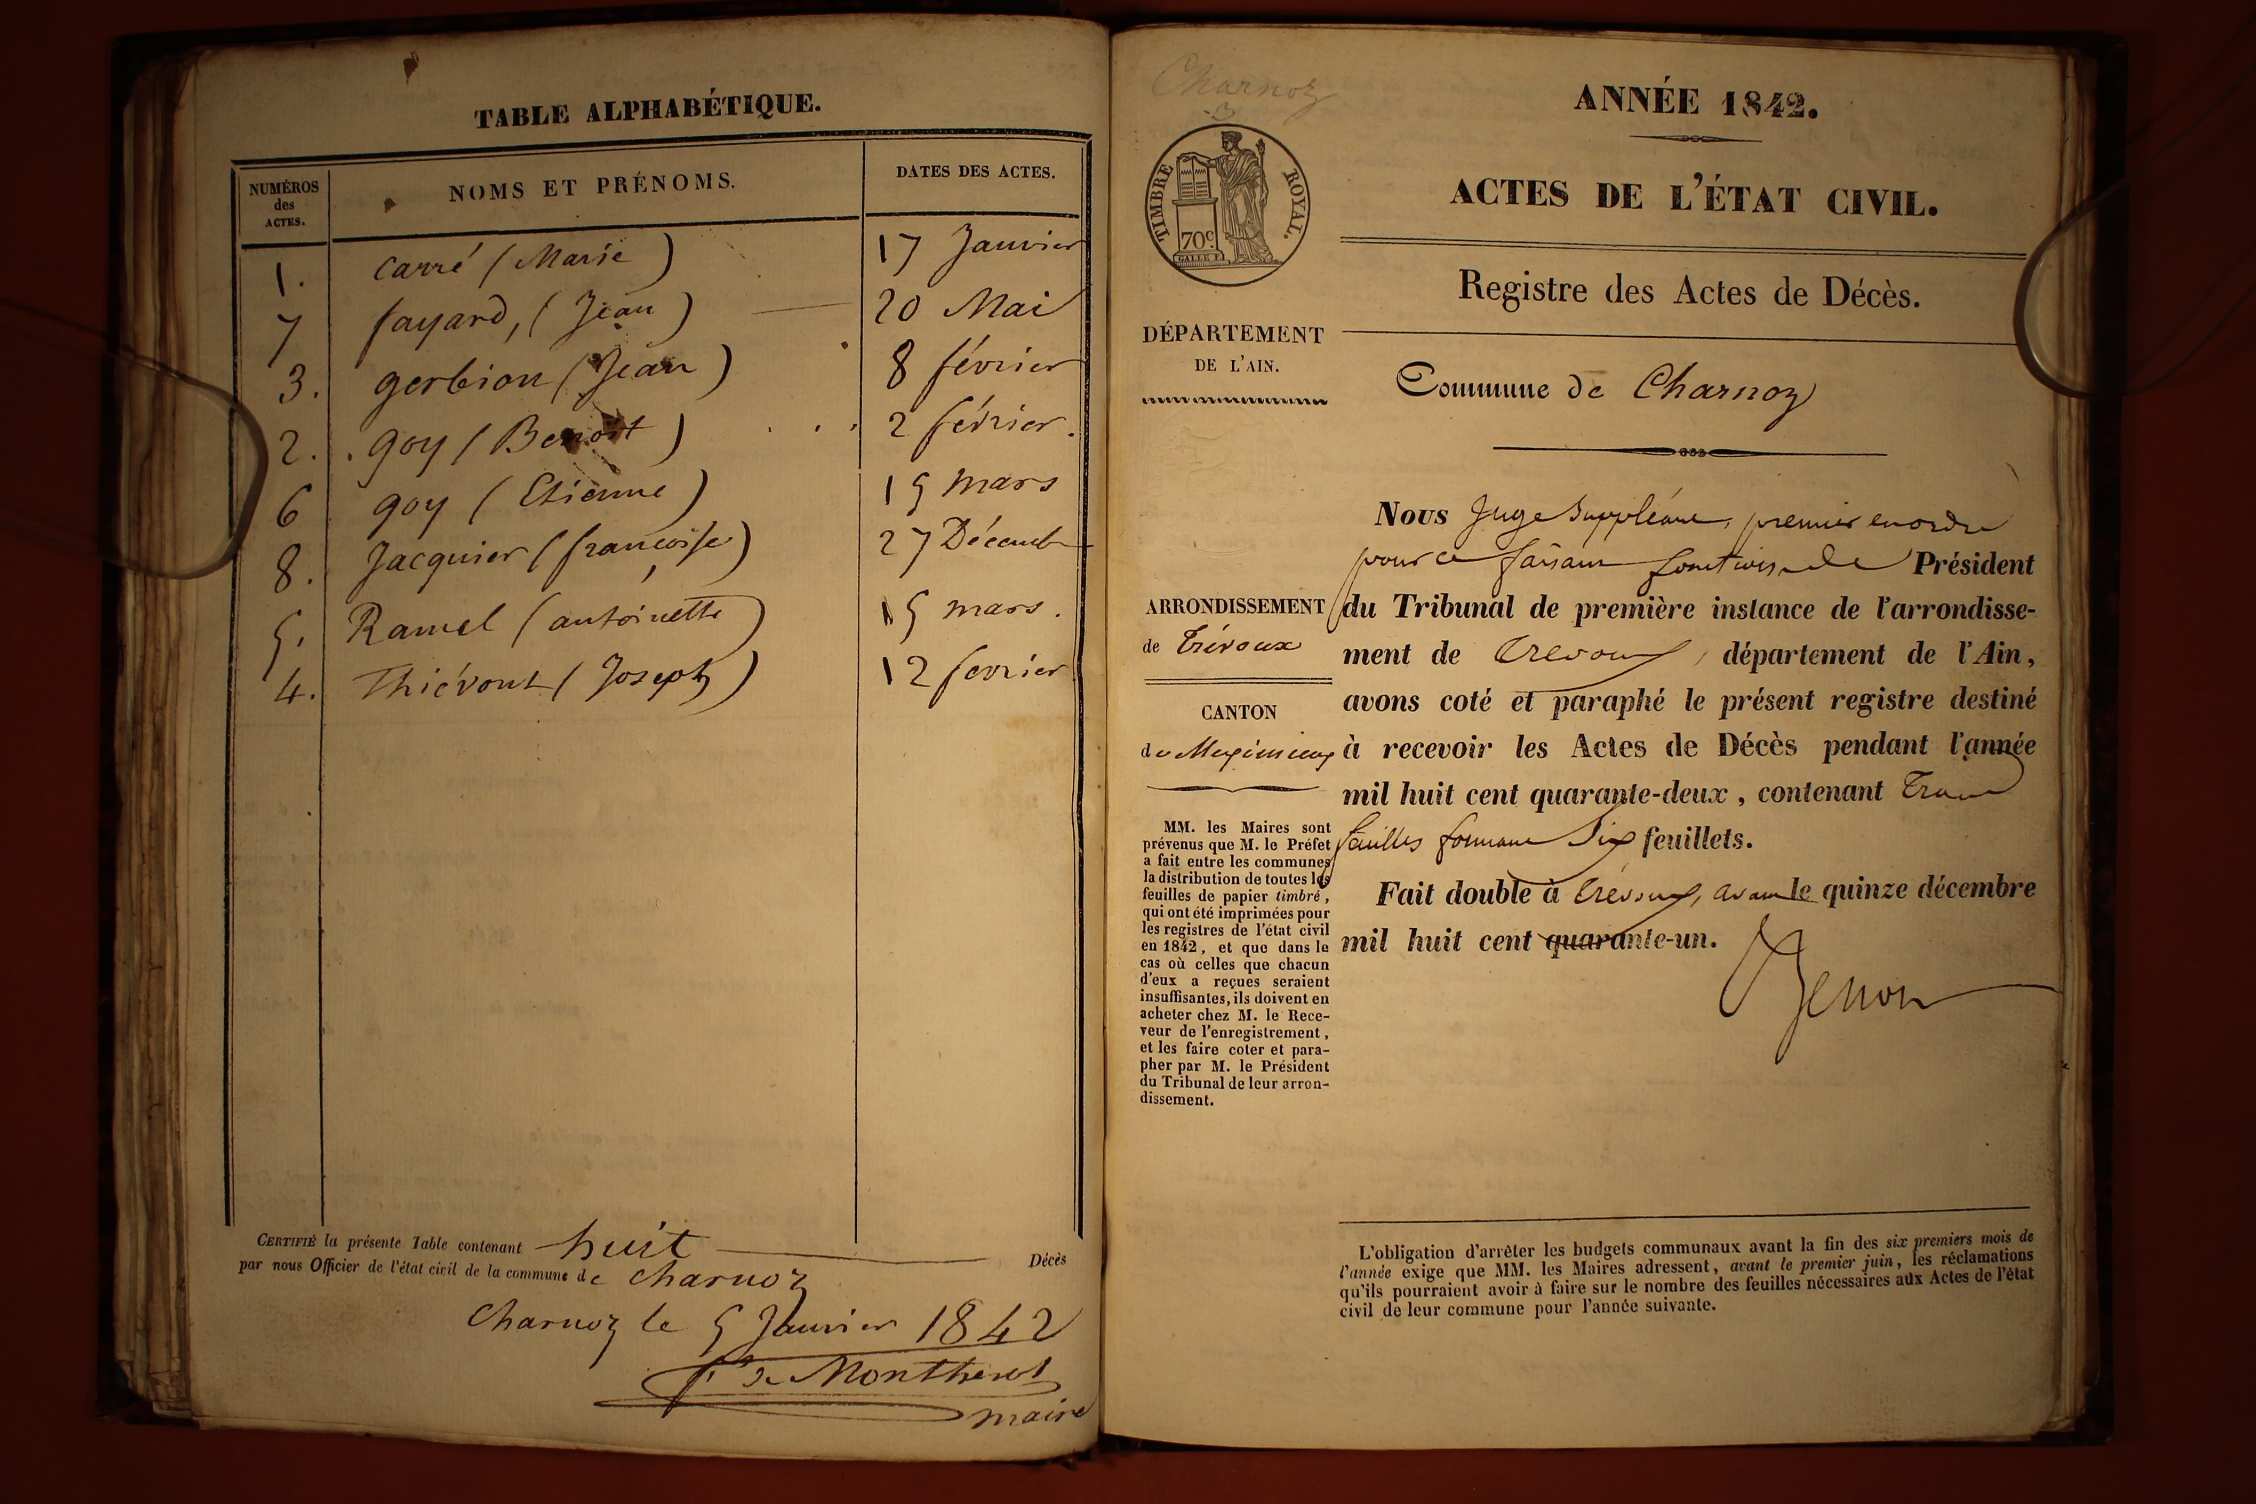 TABLE ALPHABÉTIQUE.
NUMÉROS des ACTES.
NOMS ET PRÉNOMS.
DATES DES ACTES.
1. Carré (Marie) 17 Janvier
7 fayard, (Jean) 20 Mai
3. gerbion (Jean) 8 février
2. goy (Benoit) 2 février.
6 goy (Etienne) 15 mars
8. Jacquier (françoise) 27 Décemb
5. Ramel (antoinette) 15 mars.
4. Thiévont (Joseph) 12 fevrier
CERTIFIÉ la présente Table contenant huit Décès
par nous Officier de l'état civil de la commune de Charnoz
Charnoz le 5 Janvier 1842
de Montherot
maire
Charnoz
3
TIMBRE ROYAL.
70c
DÉPARTEMENT
DE L'AIN.
ARRONDISSEMENT
de Trévoux
CANTON
de Meximieux
MM. les Maires sont
prévenus que M. le Préfet
a fait entre les communes
la distribution de toutes les
feuilles de papier timbré,
qui ont été imprimées pour
les registres de l'état civil
en 1842, et que dans le
cas où celles que chacun
d'eux a reçues seraient
insuffisantes, ils doivent en
acheter chez M. le Rece-
veur de l'enregistrement,
et les faire coter et para-
pher par M. le Président
du Tribunal de leur arron-
dissement.
ANNÉE 1842.
ACTES DE L'ÉTAT CIVIL.
Registre des Actes de Décès.
Commune de Charnoz
Nous Juge Suppléant, premier en ordre
pour ce faisant fonctions de Président
du Tribunal de première instance de l'arrondisse-
ment de Trevoux, département de l'Ain,
avons coté et paraphé le présent registre destiné
à recevoir les Actes de Décès pendant l'année
mil huit cent quarante-deux, contenant Trois
feuilles formant Six feuillets.
Fait double à Trévoux, avant le quinze décembre
mil huit cent quarante-un.
L'obligation d'arrêter les budgets communaux avant la fin des six premiers mois de
l'année exige que MM. les Maires adressent, avant le premier juin, les réclamations
qu'ils pourraient avoir à faire sur le nombre des feuilles nécessaires aux Actes de l'état
civil de leur commune pour l'année suivante.